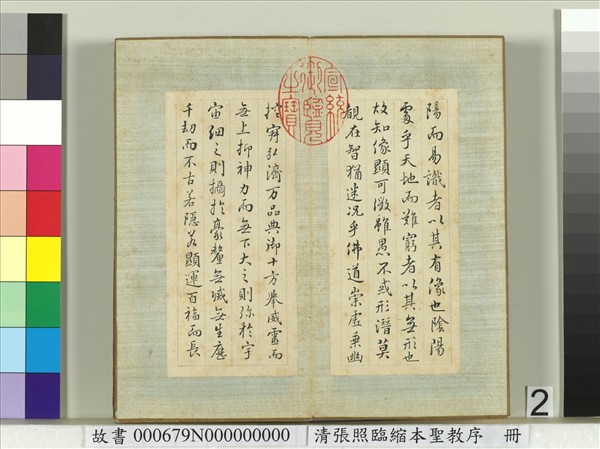 陽而易識者以其有像也陰陽
處乎天地而難窮者以其無形也
故知像顯可徵雖愚不惑形潛莫
覩在智猶迷況乎佛道崇虛乘幽
控寂弘濟万品典御十方舉威靈而
無上抑神力而無下大之則弥於宇
宙細之則攝於豪釐無滅無生歷
千劫而不古若隱若顯運百福而長
宣統御覽之寶
2
故書 000679N000000000 清張照臨縮本聖教序 冊